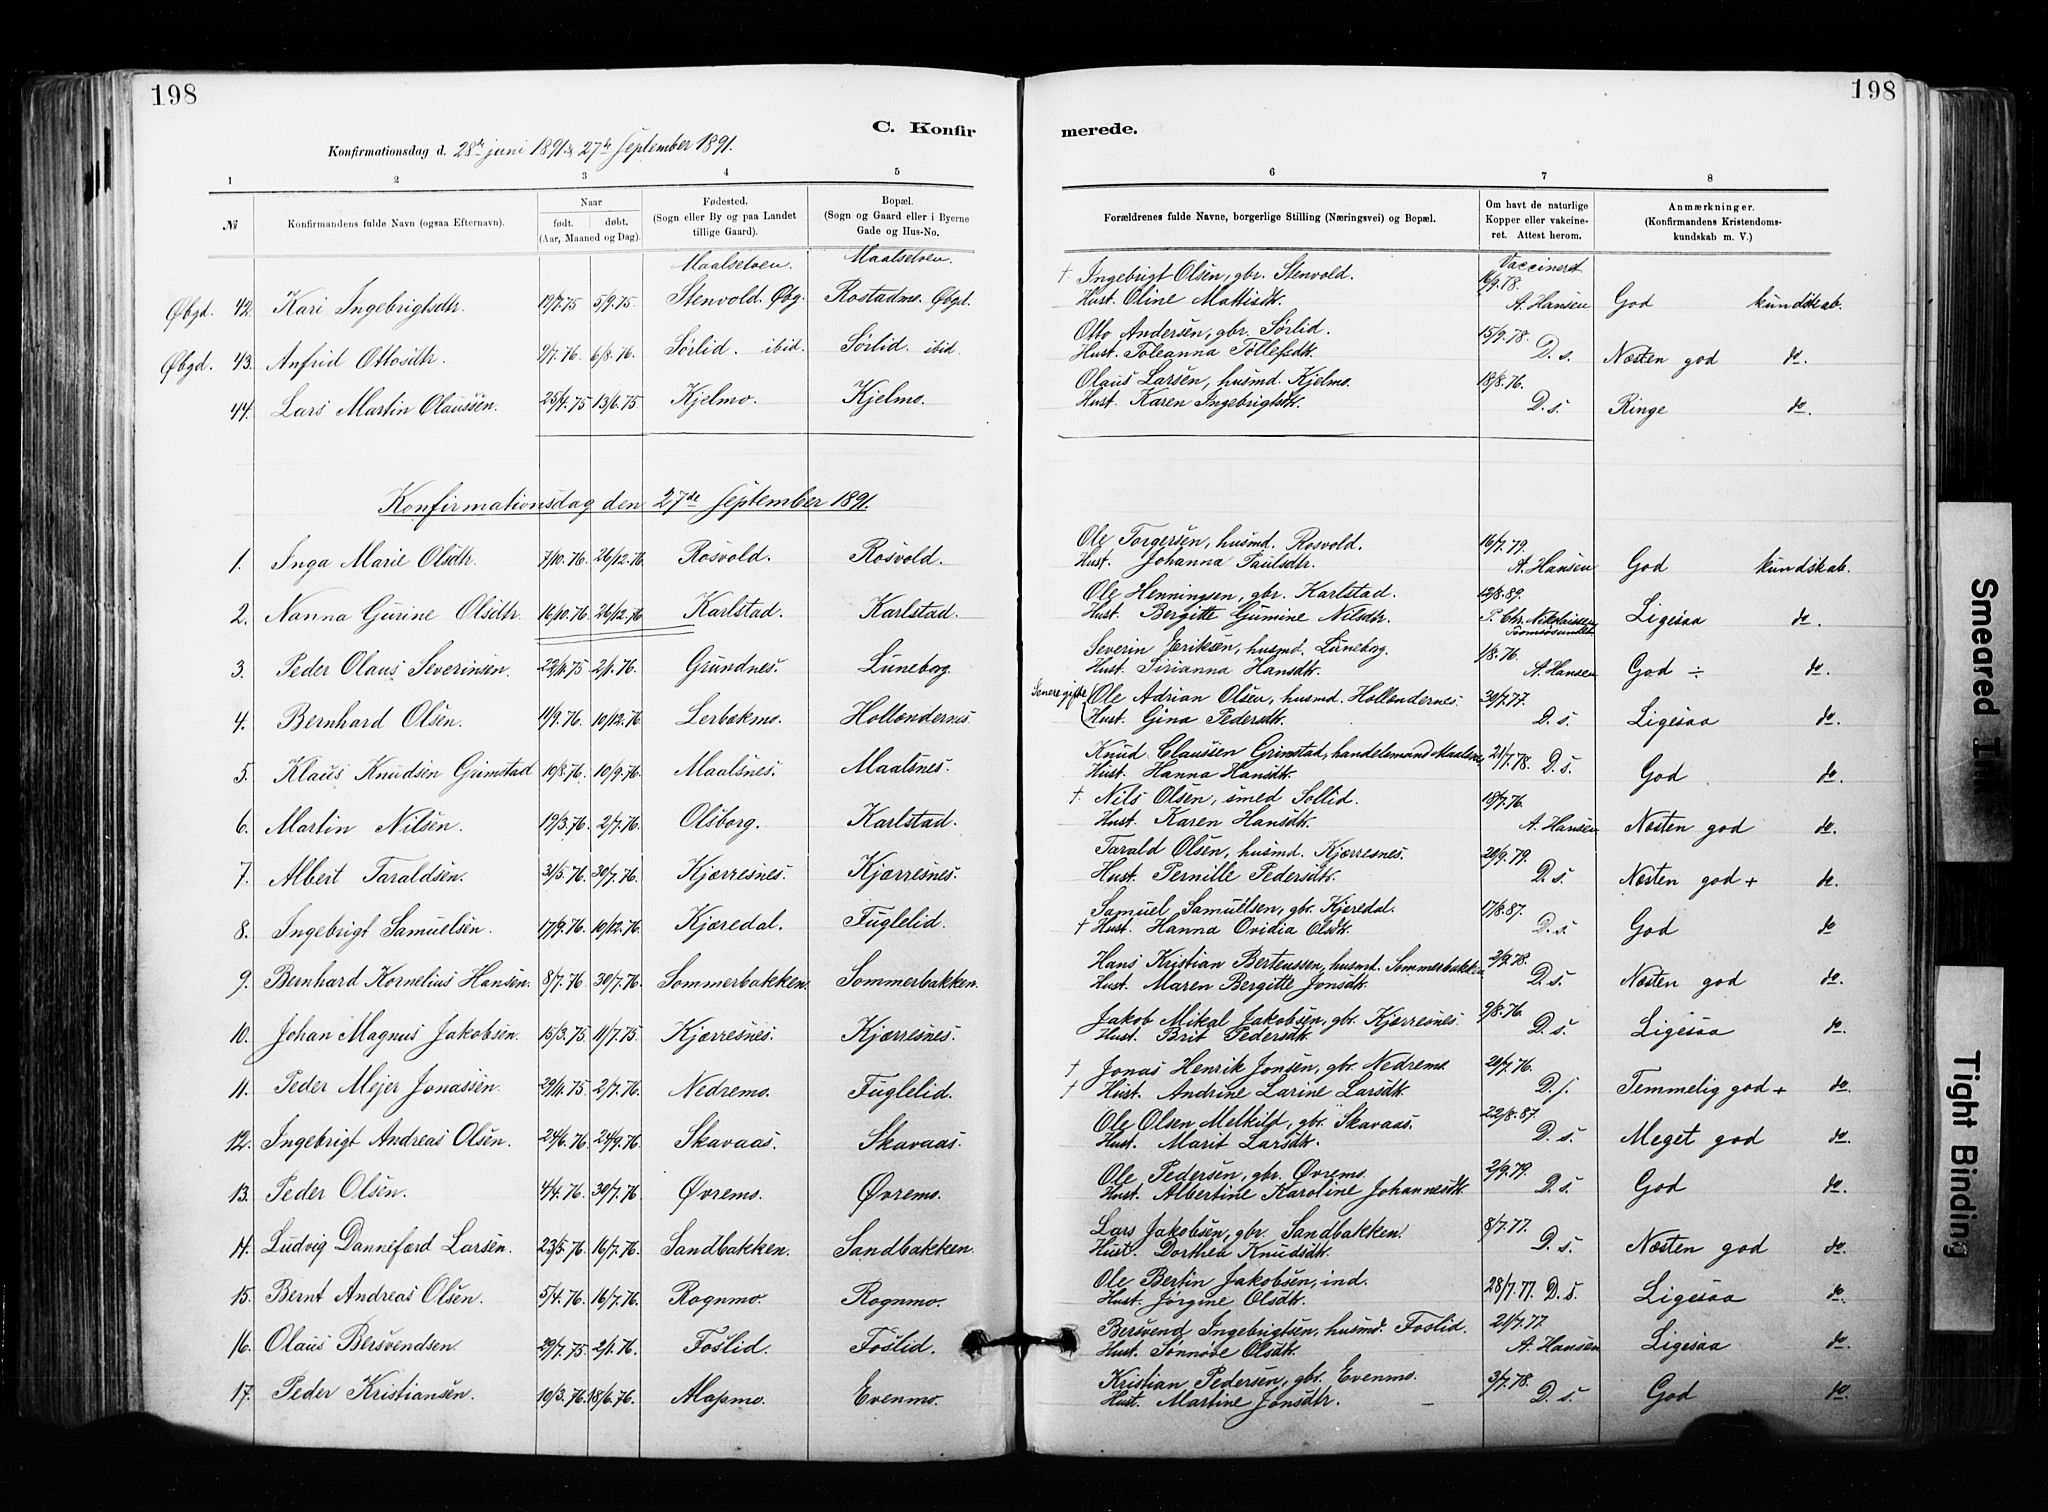 198
198
C. Konfir
merede.
Konfirmationsdag d. 28de juni 1891 & 27de September 1891.
1 2 3 4 5 6 7 8
№
Konfirmandens fulde Navn (ogsaa Efternavn).
Naar
født. døbt.
(Aar, Maaned og Dag).
Fødested.
(Sogn eller By og paa Landet
tillige Gaard).
Bopæl.
(Sogn og Gaard eller i Byerne
Gade og Hus-No.
Forældrenes fulde Navne, borgerlige Stilling (Næringsvei) og Bopæl.
Om havt de naturlige
Kopper eller vakcine-
ret. Attest herom.
Anmærkninger.
(Konfirmandens Kristendoms-
kundskab m. V.)
Maalselven. Maalselven. † Ingebrigt Olsen, gbr. Stenvold. Vaccineret
Øbgd. 42. Kari Ingebrigtsdtr. 19/7.75 5/9.75 Stenvold. Øbg. Rostadmo. Øbgd. Hust. Oline Mattisdtr. 16/9.78. A. Hansen God kundskab.
Otto Andersen, gbr. Sørlid. 15/9.78.
Øbgd. 43. Anfrid Ottosdtr. 9/7.76. 6/8.76. Sørlid. ibid. Sørlid. ibid. Hust. Toleanna Tollefsdtr. D. s. Næsten god do.
Olaus Larsen, husmd. Kjelmo. 18/8.76.
44. Lars Martin Olaussen. 25/4.75 13/6.75 Kjelmo. Kjelmo. Hust. Karen Ingebrigtsdtr. D. s. Ringe do.
Konfirmationsdag den 27de September 1891.
Ole Torgersen, husmd. Rosvold. 16/7.79.
1. Inga Marie Olsdtr. 7/10.76. 26/12.76 Rosvold. Rosvold. Hust. Johanna Paulsdtr. A. Hansen God kundskab.
Ole Henningsen, gbr. Karlstad. 12/8.89.
2. Nanna Gurine Olsdtr. 16/10.76. 26/12.76 Karlstad. Karlstad. Hust. Bergitte Gumine Nilsdtr. P. Chr. Nikolaissen Ligesaa do.
Tromsøsundet
Severin Eriksen, husmd. Lüneborg. 1/8.76.
3. Peder Olaus Severinsen. 22/11.75 2/1.76. Grundnes. Lüneborg. Hust. Sirianna Hansdtr. A. Hansen God ÷ do.
Senere gifte Ole Adrian Olsen, husmd. Hollendernes. 30/7.77.
4. Bernhard Olsen. 11/9.76. 10/12.76 Lerbakmo. Hollendernes. Hust. Gina Pedersdtr. D. s. Ligesaa do.
Knud Claussen Grimstad, handelsmand Maalsnes 21/7.78. D. s.
5. Klaus Knudsen Grimstad 10/8.76. 10/9.76. Maalsnes. Maalsnes. Hust. Hanna Hansdtr. God do.
† Nils Olsen, smed Sollid. 19/7.76.
6. Martin Nilsen. 19/3.76. 2/7.76. Olsborg. Karlstad. Hust. Karen Hansdtr. A. Hansen Næsten god do.
Tarald Olsen, husmd. Kjærresnes. 20/9.79.
7. Albert Taraldsen. 31/5.76. 30/7.76. Kjærresnes. Kjærresnes. Hust. Pernille Pedersdtr. D. s. Næsten god + do.
Samuel Samuelsen, gbr. Kjæredal. 17/8.87.
8. Ingebrigt Samuelsen. 17/9.76. 10/12.76. Kjæredal. Fuglelid. † Hust. Hanna Ovidia Olsdtr. D. s. God do
Hans Kristian Berteussen, husmd. Sommerbakken 2/9.78.
9. Bernhard Kornelius Hansen. 8/7.76 30/7.76. Sommerbakken. Sommerbakken. Hust. Maren Bergitte Jonsdtr. D. s. Næsten god do.
Jakob Mikal Jakobsen, gbr. Kjærresnes. 9/8.76.
10. Johan Magnus Jakobsen. 15/3.75. 11/7.75. Kjærresnes. Kjærresnes. Hust. Brit Pedersdtr. D. s. Ligesaa do.
† Jonas Henrik Jonsen, gbr. Nedremo. 20/7.76.
11. Peder Mejer Jonassen. 29/11.75 2/7.76. Nedremo. Fuglelid. † Hust. Andrine Larine Larsdtr. D. s. Temmelig god + do.
Ole Olsen Melkild, gbr. Skavaas. 22/8.87.
12. Ingebrigt Andreas Olsen. 24/6.76 24/9.76 Skavaas. Skavaas. Hust. Marit Larsdtr. D. s. Meget god do.
Ole Pedersen, gbr. Øvremo. 2/9.79.
13. Peder Olsen. 4/4.76. 30/7.76 Øvremo. Øvremo. Hust. Albertine Karoline Johannesdtr. D. s. God do.
Lars Jakobsen, gbr. Sandbakken. 8/7.77.
14. Ludvig Danneferd Larsen. 23/5.76. 16/7.76. Sandbakken. Sandbakken. Hust. Dorthea Knudsdtr. D. s. Næsten god do.
Ole Bertin Jakobsen, ind.
15. Bernt Andreas Olsen. 5/4.76. 16/7.76. Rognmo. Rognmo. Hust. Jørgine Olsdtr. 28/7.77. D. s. Ligesaa do.
Bersvend Ingebrigtsen, husmd. Foslid. 21/7.77.
16. Olaus Bersvendsen. 29/7.75. 2/1.76. Foslid. Foslid. Hust. Sønnøve Olsdtr. A. Hansen Ligesaa do.
Kristian Pedersen, gbr. Evenmo. 3/7.78.
17. Peder Kristiansen. 10/3.76. 18/6.76. Alapmo. Evenmo. Hust. Martine Jonsdtr. D. s. God do.
Smeared Ink
Tight Binding